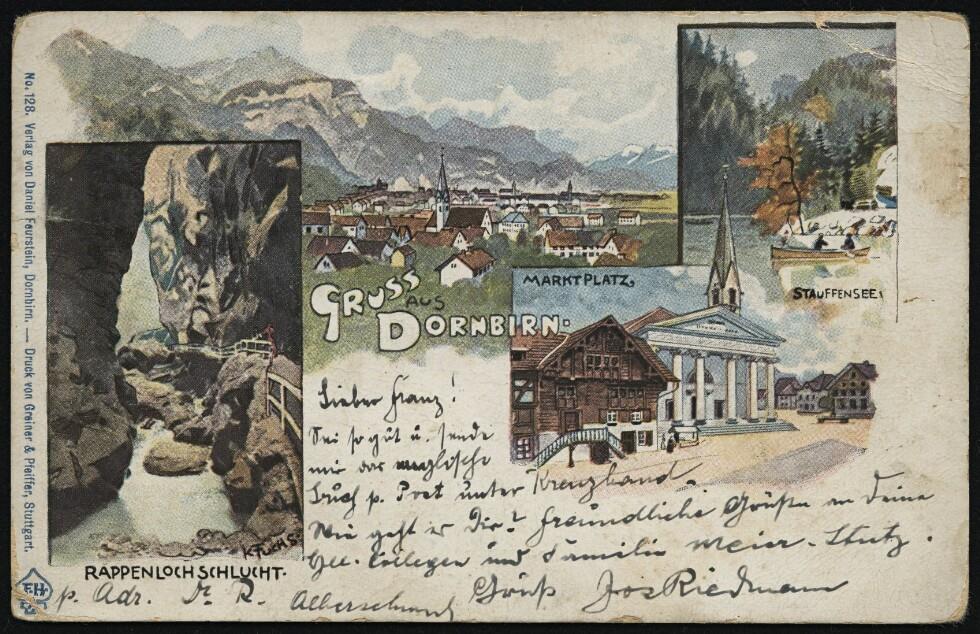 No. 128. Verlag von Daniel Feurstein, Dornbirn. — Druck von Greiner & Pfeiffer, Stuttgart.
GRUSS
AUS
DORNBIRN.
MARKTPLATZ.
STAUFFENSEE.
K. FUCHS.
RAPPENLOCHSCHLUCHT.
Lieber Franz!
Sei so gut u. sende
mir das englische
Buch p. Post unter Kreuzband.
Wie geht es Dir? Freundliche Grüße an Deine
Hr. Collegen und Familie Meier-Stutz.
Gruß Jos Riedmann
p. Adr. Dr. R.